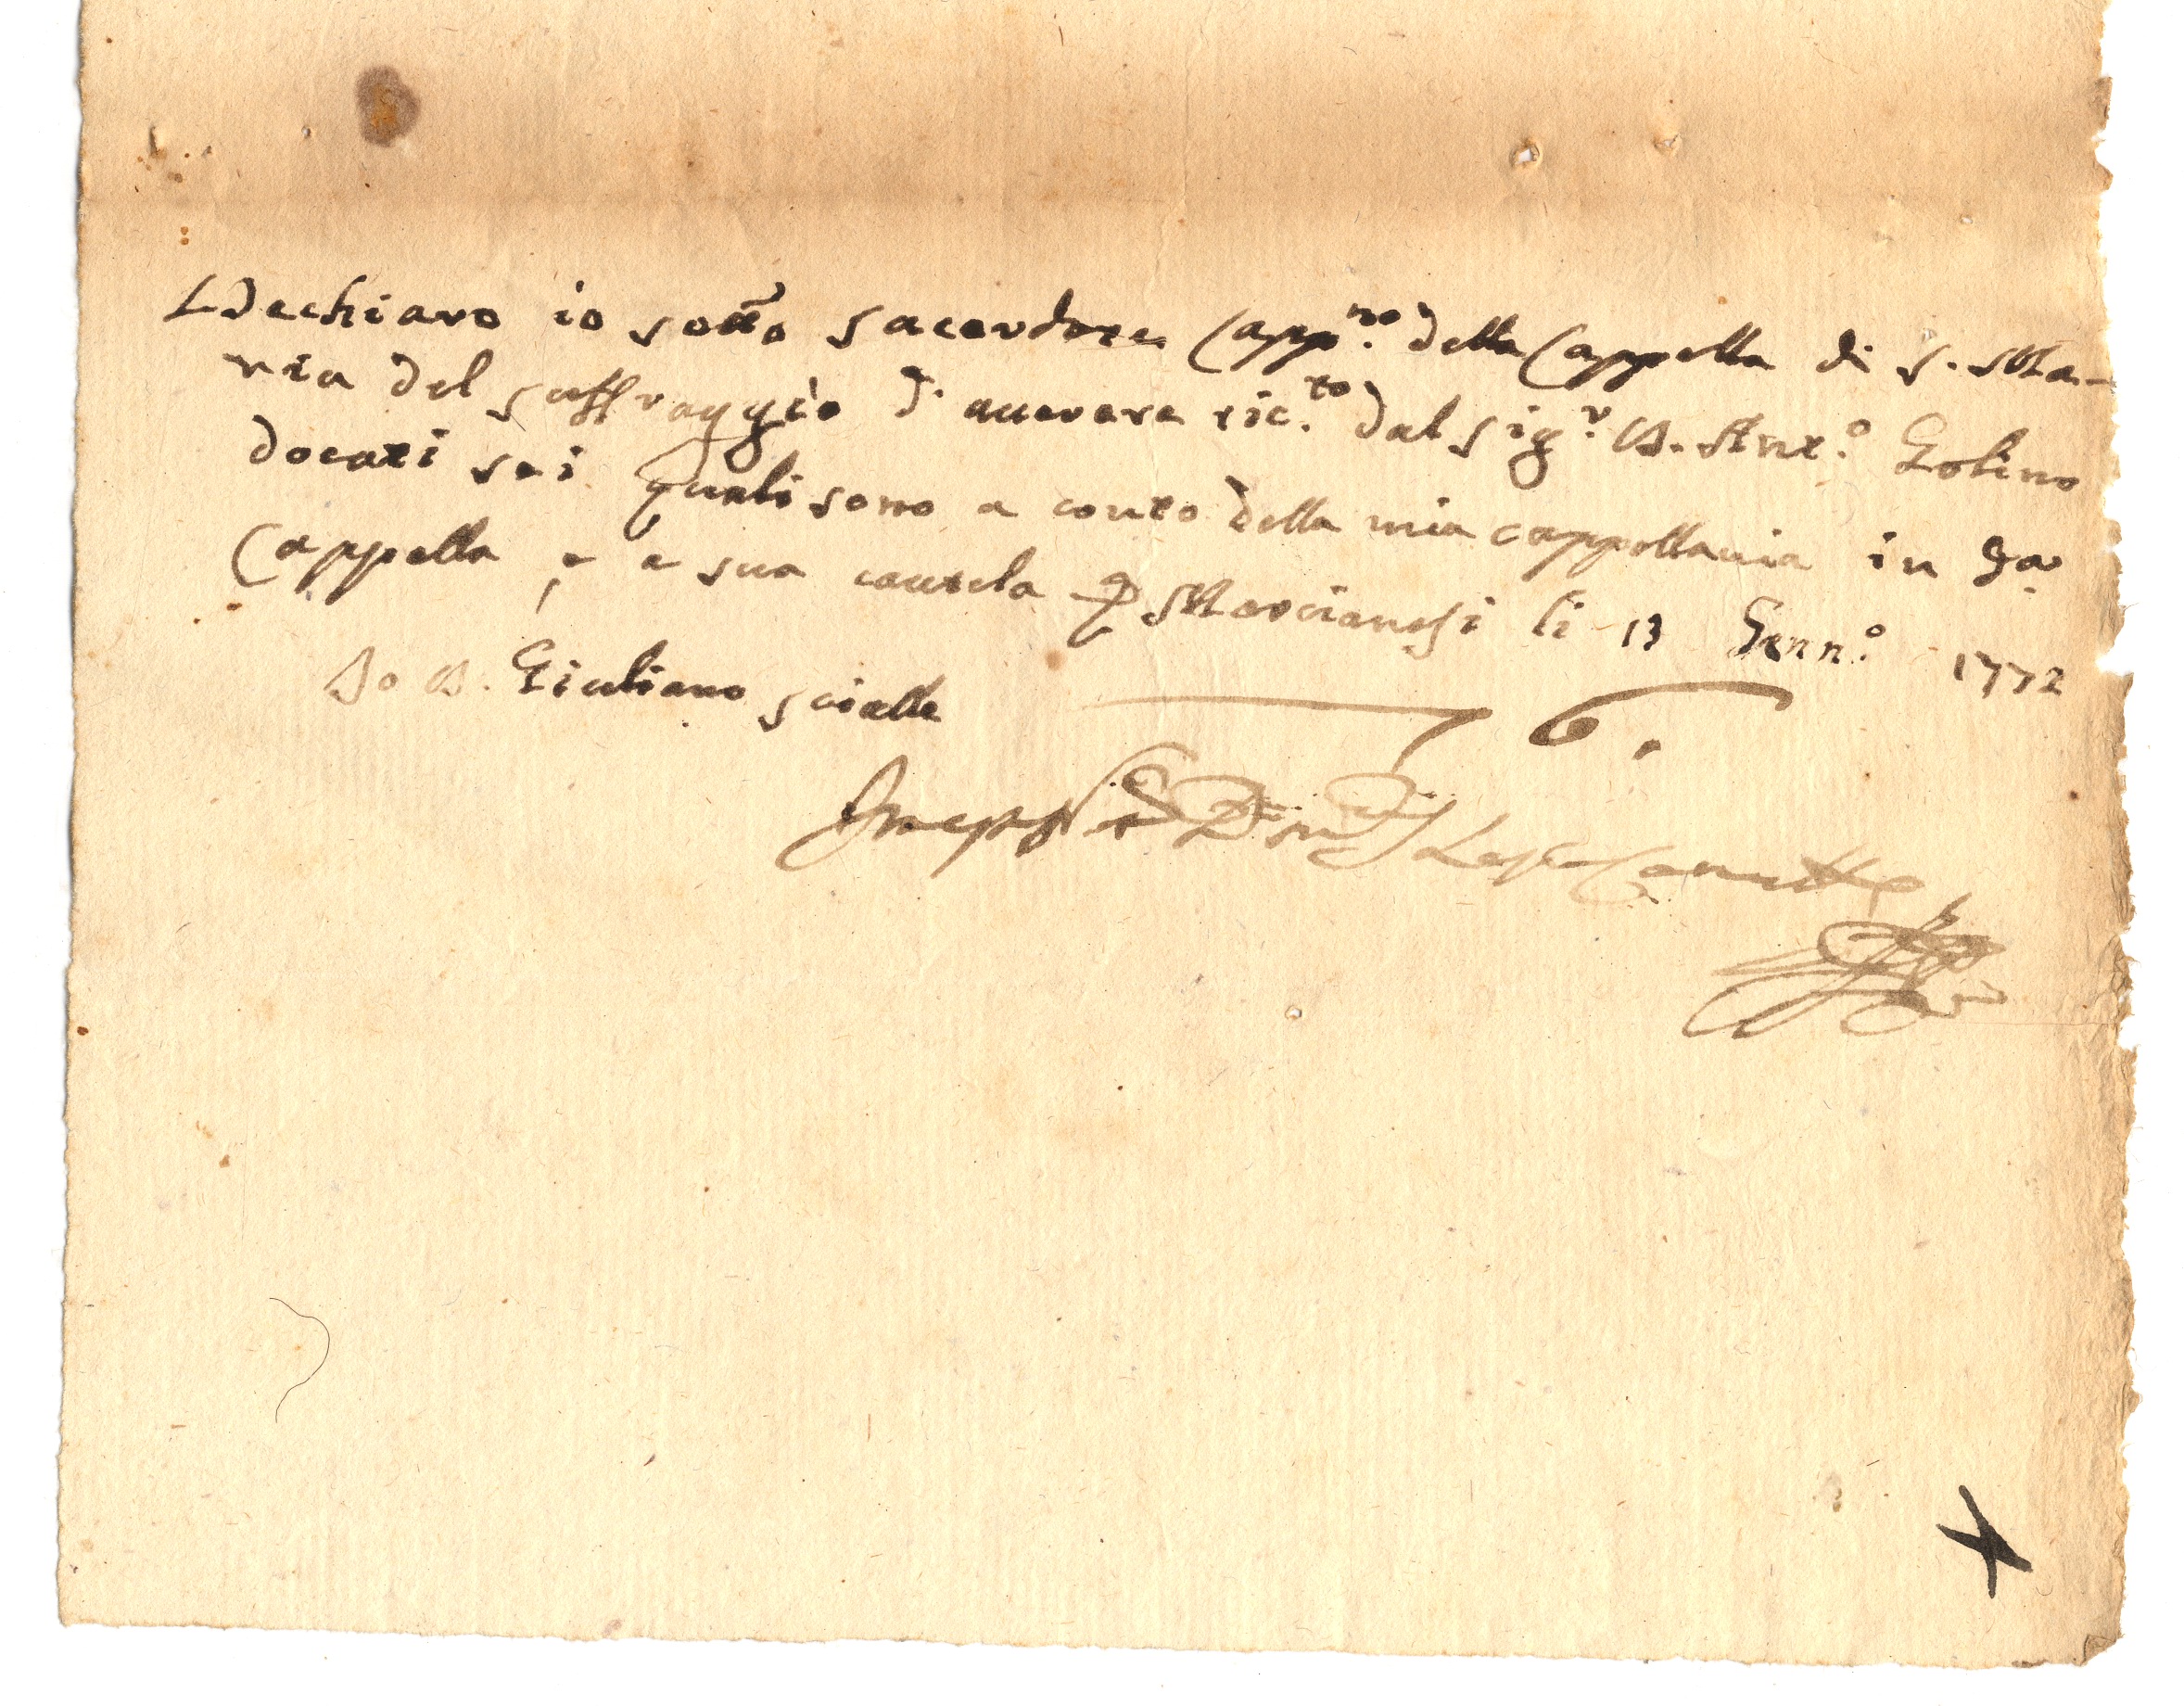 Dechiaro io sotto sacerdote Capp.no della Cappella di S. Ma-
ria del suffraggio d' avvere ric.to dal Sig.r D. Ant.o Golino
docati sei quali sono a conto della mia cappellania in d.a
Cappella, e a sua cautela Marcianesi li 13 Genn.o 1772
Io D. Giuliano scialle
6.